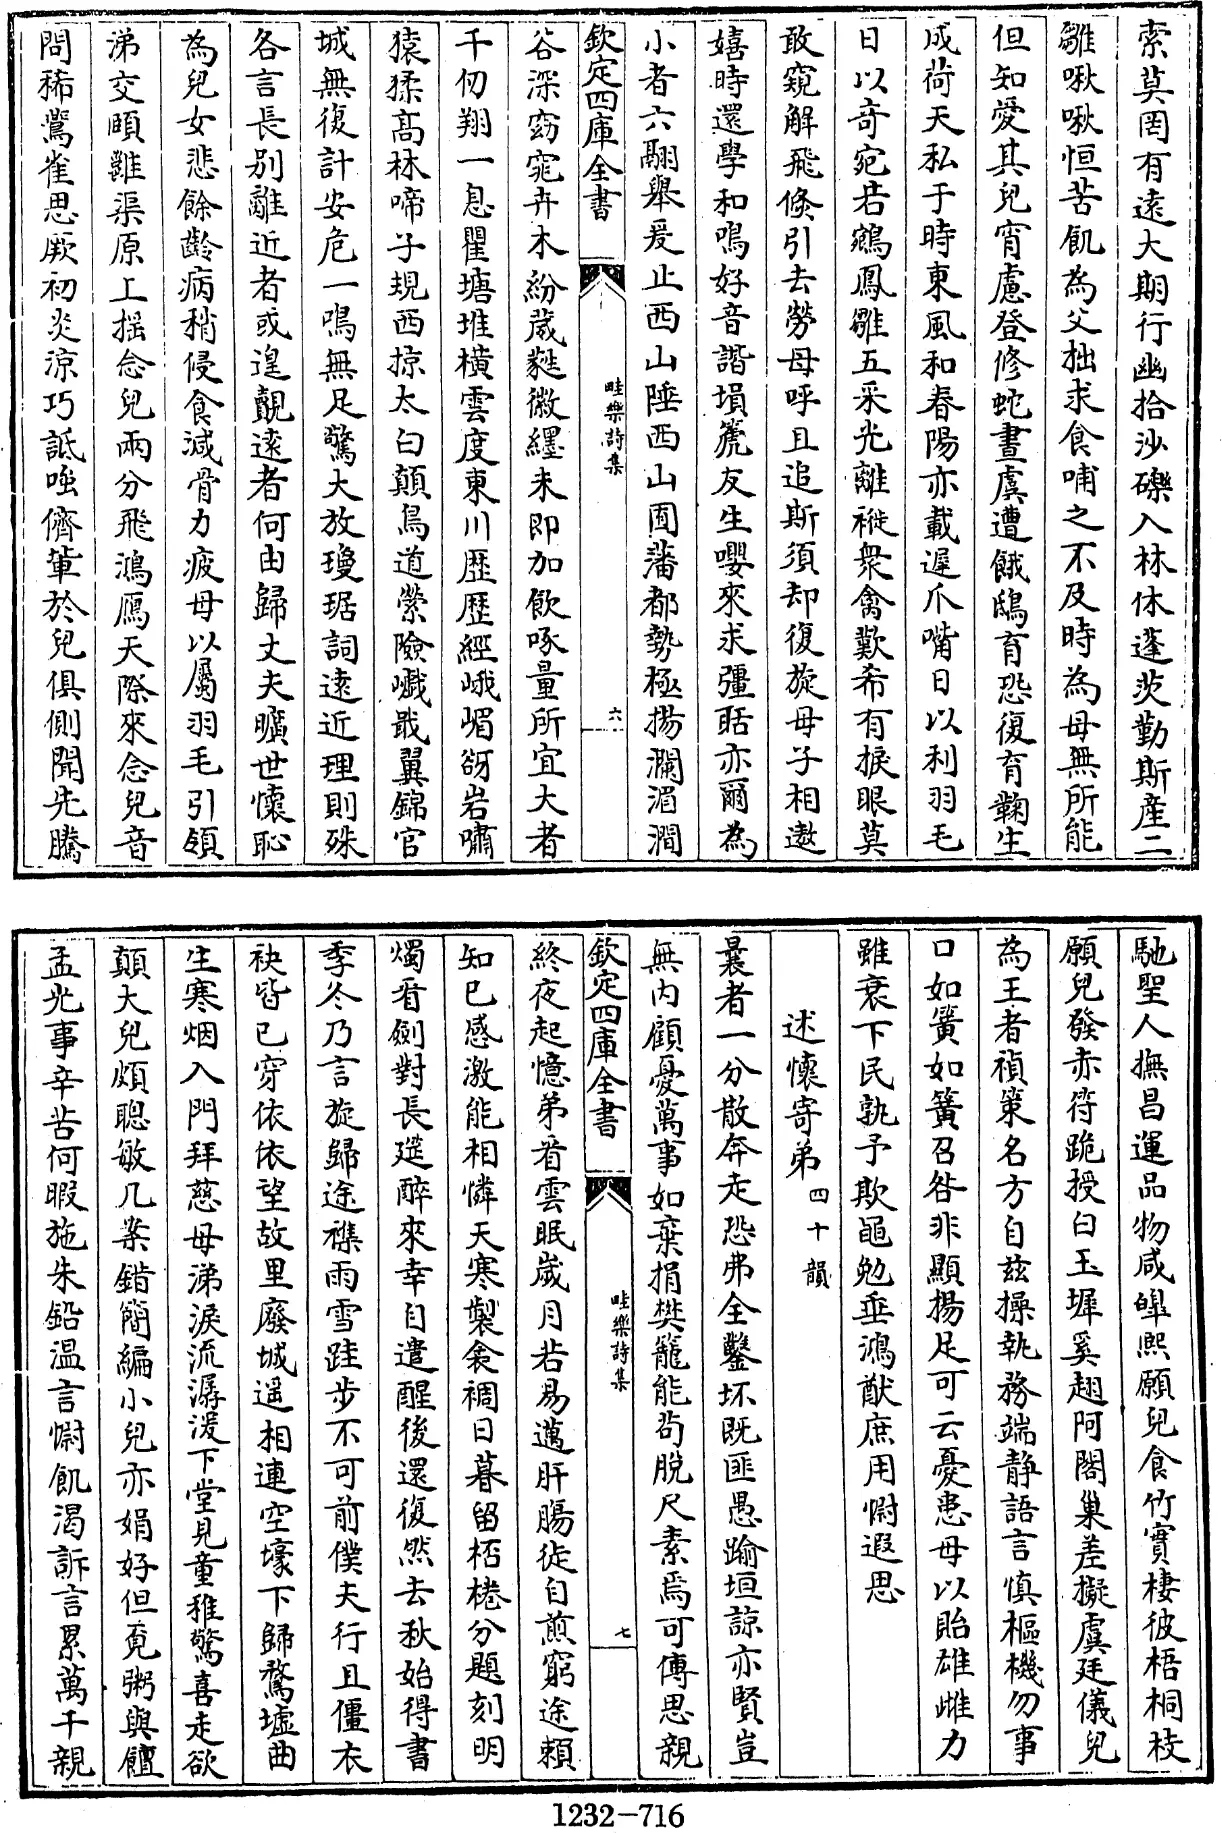 索莫罔有遠大期行幽拾沙礫入林休蓬茨勤斯產二
雛啾啾恒苦飢為父拙求食哺之不及時為母無所能
但知愛其兒宵慮登修蛇晝虞遭餓鴟育恐復育鞠生
成荷天私于時東風和春陽亦載遲爪嘴日以利羽毛
日以奇宛若鵷鳳雛五采光離褷衆禽歎希有挨眼莫
敢窺解飛倏引去勞母呼且追斯須却復旋母子相遨
嬉時還學和鳴好音諧塤箎友生嚶來求彊聒亦爾為
小者六翮舉爰止西山陲西山固藩都勢極揚瀾湄澗
欽定四庫全書
畦樂詩集
六
谷深窈窕卉木紛葳蕤徽纆未即加飲啄量所宜大者
千仞翔一息瞿塘堆橫雲度東川歷歷經峨嵋谺岩嘯
猿猱髙林啼子規西掠太白顛鳥道縈險巇戢翼錦官
城無復計安危一鳴無足驚大放瓊琚詞遠近理則殊
各言長别離近者或遑覿遠者何由歸丈夫曠世懷恥
為兒女悲餘齡病稍侵食減骨力疲母以屬羽毛引領
涕交頤雖渠原上摇念兒兩分飛鴻鴈天際來念兒音
問稀鶯雀思厥初炎涼巧詆嗤儕軰於兒俱側聞先騰
馳聖人撫昌運品物咸皥熙願兒食竹實棲彼梧桐枝
願兒發赤符跪授白玉墀奚翅阿閣巢差擬虞廷儀兒
為王者禎策名方自兹操執務端静語言慎樞機勿事
口如簧如簧召咎非顯揚足可云憂患母以貽雄雌力
雖衰下民孰予欺黽勉垂鴻猷庶用慰遐思
述懷寄弟四十韻
曩者一分散奔走恐弗全鑿坏既匪愚踰垣諒亦賢豈
無内顧憂萬事如棄捐樊籠能茍脱尺素焉可傳思親
欽定四庫全書
畦樂詩集
七
終夜起憶弟看雲眠歲月若易邁肝腸徒自煎窮途賴
知已感激能相憐天寒製衾裯日暮留桮棬分題刻明
燭看劒對長筵醉來幸自遣醒後還復然去秋始得書
季冬乃言旋歸途襍雨雪跬步不可前僕夫行且僵衣
袂皆已穿依依望故里廢城遥相連空壕下歸鶩墟曲
生寒烟入門拜慈母涕淚流潺湲下堂見童稚驚喜走欲
顛大兒頗聰敏几案錯簡編小兒亦娟好但覔粥與饘
孟光事辛苦何暇施朱鉛温言慰飢渴訴言累萬千親
1232-716